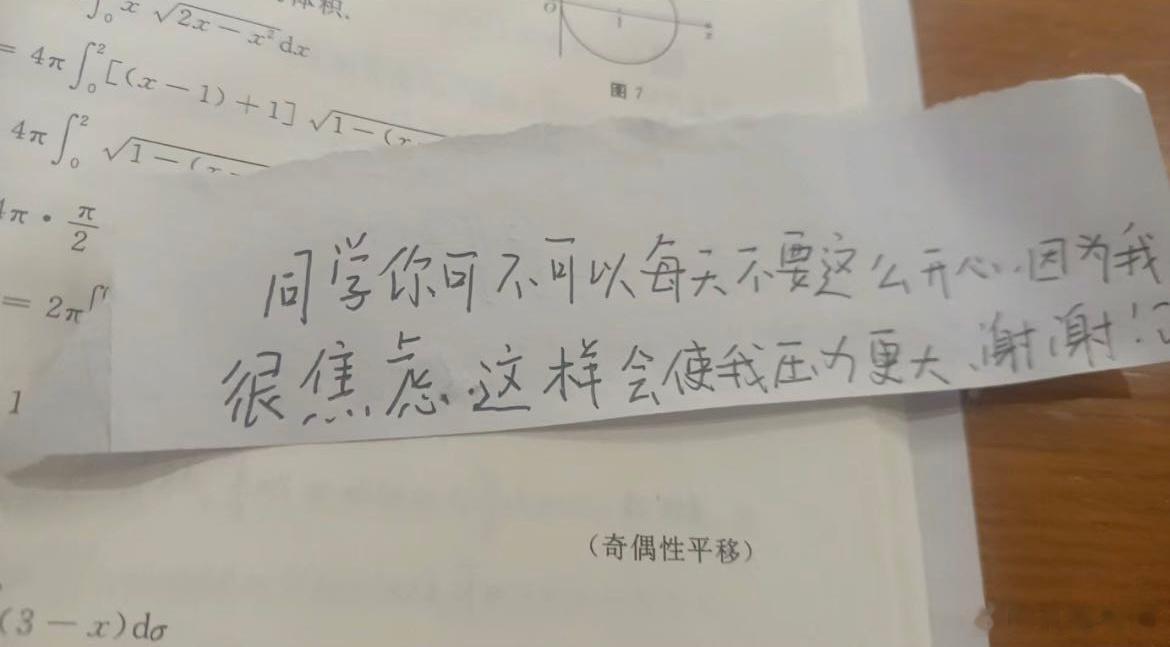 体积.
∫₀ x √(2x − x²) dx
= 4π ∫₀² [(x − 1) + 1] √(1 − (x
图 7
4π ∫₀² √(1 − (x −
4π · π/2
= 2π
1
同学你可不可以每天不要这么开心..因为我
很焦虑.这样会使我压力更大、谢谢!
(奇偶性平移)
(3 − x)dσ